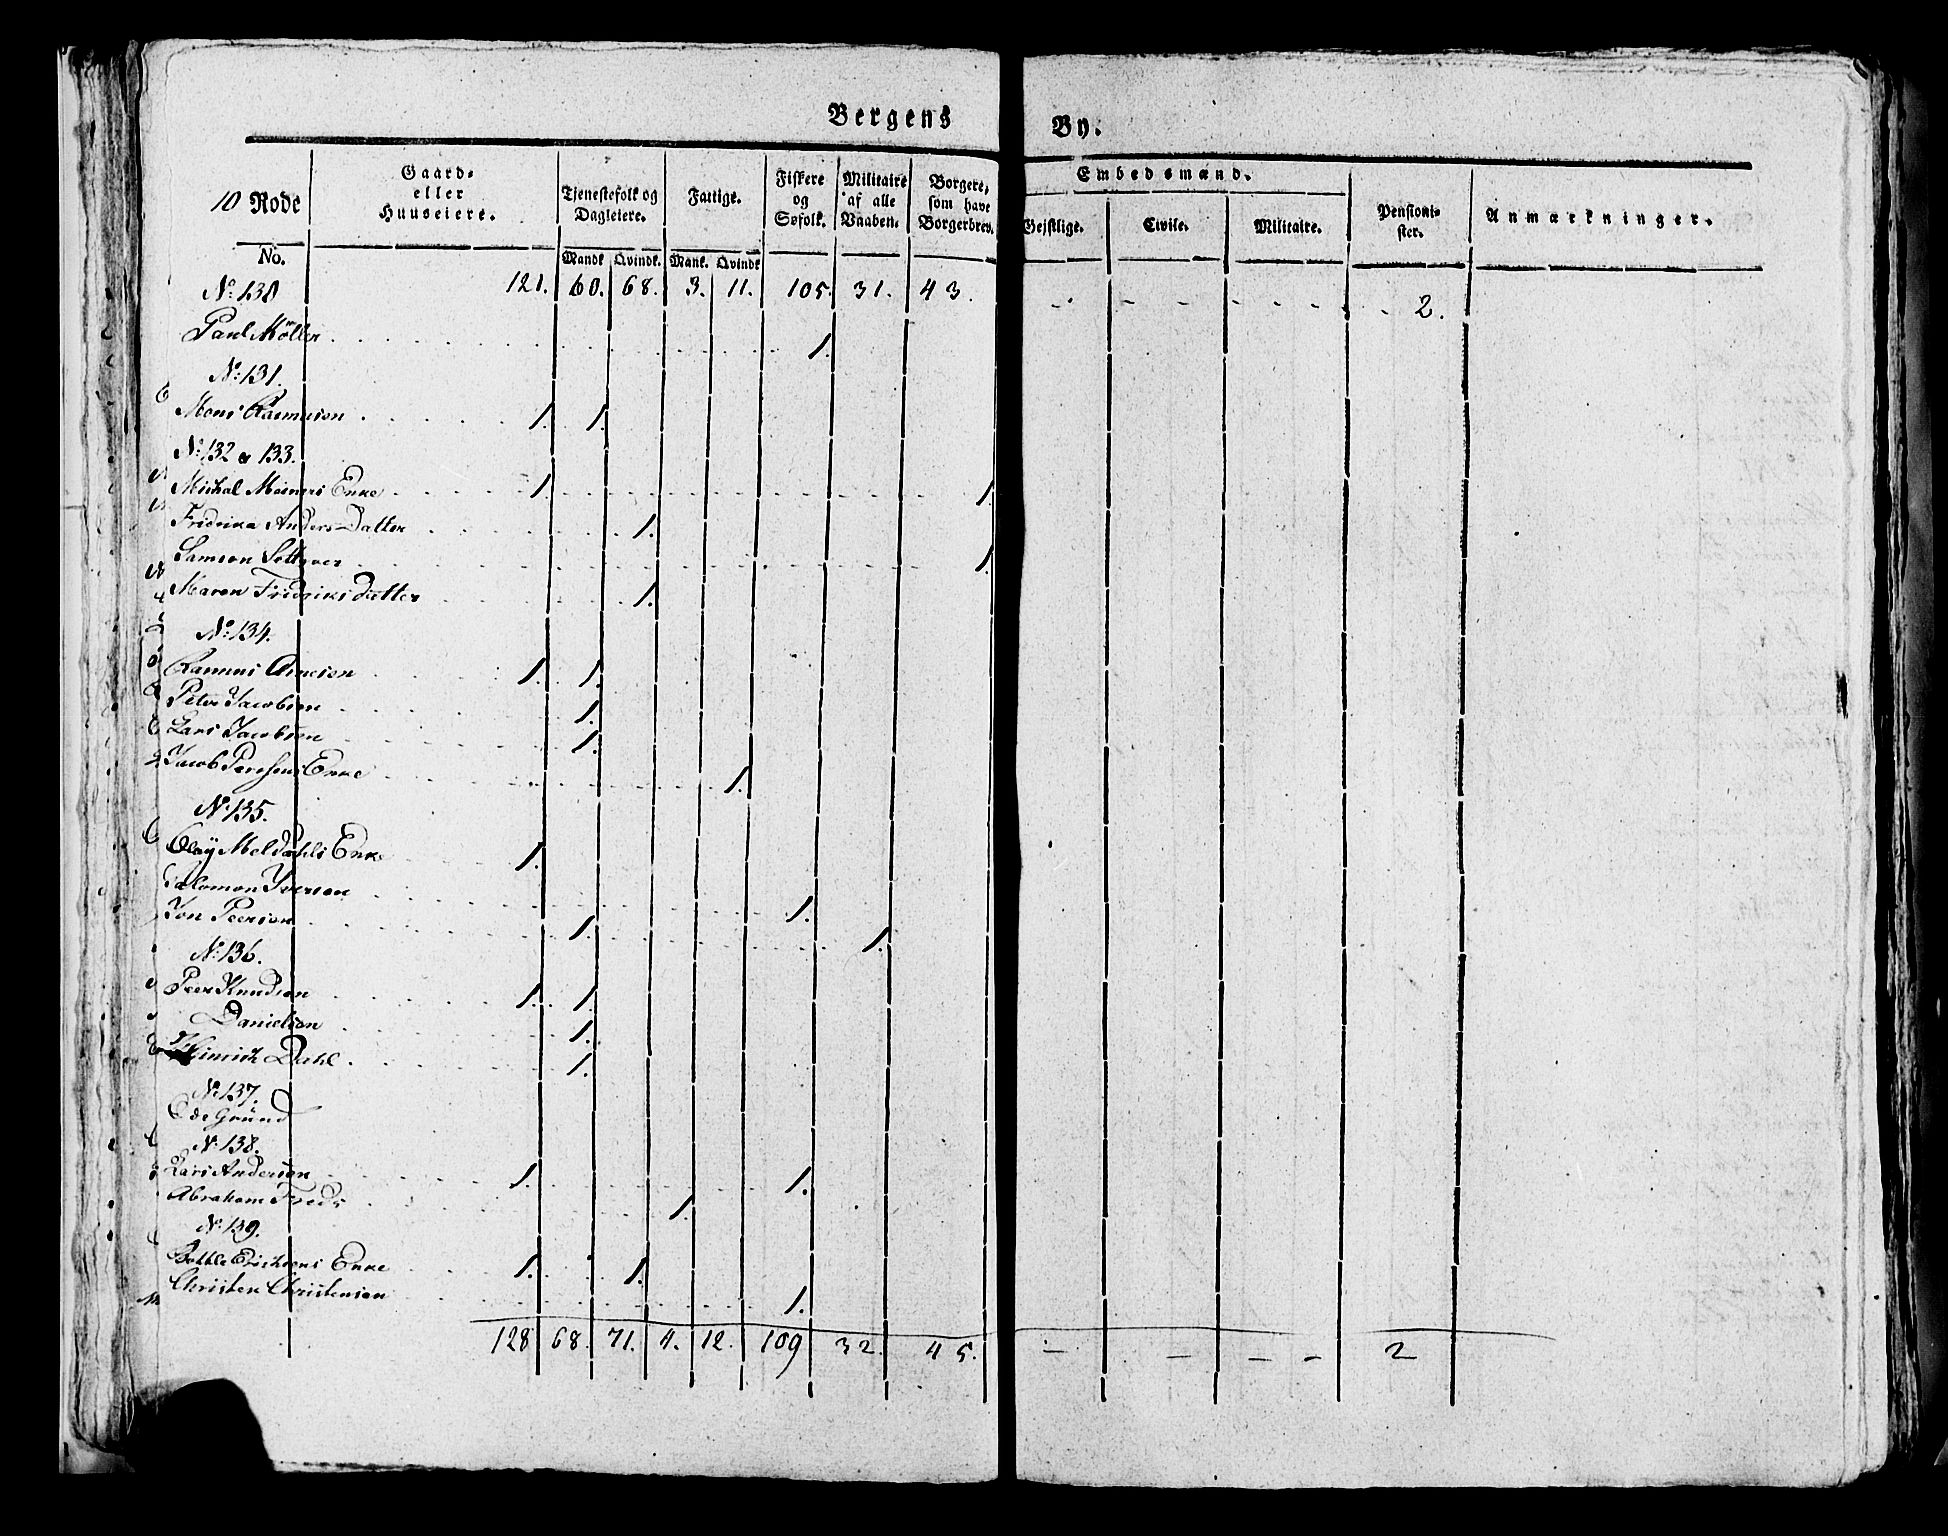 Bergens By.
10 Rode
No.
Gaard-
eller
Huuseiere.
Tjenestefolk og
Dagleiere.
Mandk Qvindk.
Fattige.
Mank. Qvindk
Fiskere
og
Søfolk.
Militaire
af alle
Vaaben.
Borgere,
som have
Borgerbrev.
Embedsmænd.
Gejstlige. Civile. Militaire.
Pensioni-
ster.
Anmærkninger.
No: 130 121. 60. 68. 3. 11. 105. 31. 43. - - - - 2.
Paul Möller 1.
No: 131.
Mons Rasmusen 1. 1.
No: 132 & 133.
Michal Meiners Enke 1. 1.
Fridrika Anders Datter 1.
Samson 1.
Maren Fridriks datter 1.
No: 134.
Rasmus Arnesen 1. 1.
Peter Jacobsen 1.
Lars Jacobsen 1.
Jacob Enke 1.
No: 135.
Meldahls Enke 1.
Salomon Iversen 1.
Jon Peersen 1. 1.
No: 136.
Peer Knudsen 1. 1.
Danielsen 1.
Hinrich Dahl 1.
No 137.
Öde Gründ
No: 138.
Lars Andersen 1. 1.
Abraham Freds 1.
No: 139.
Erichsens Enke 1. 1.
Christen Christensen 1.
128 68. 71. 4. 12. 109 32. 45. - - - - 2